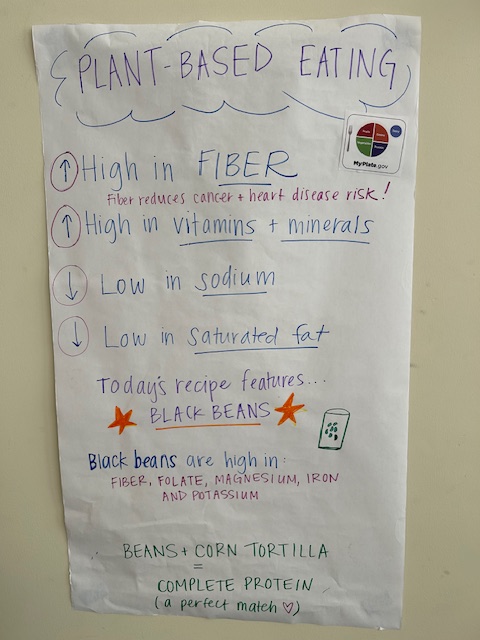 PLANT-BASED EATING
MyPlate.gov
↑ High in FIBER
Fiber reduces cancer + heart disease risk!
↑ High in vitamins + minerals
↓ Low in sodium
↓ Low in saturated fat
Today's recipe features...
BLACK BEANS
Black beans are high in:
FIBER, FOLATE, MAGNESIUM, IRON
AND POTASSIUM
BEANS + CORN TORTILLA
=
COMPLETE PROTEIN
(a perfect match ♡)